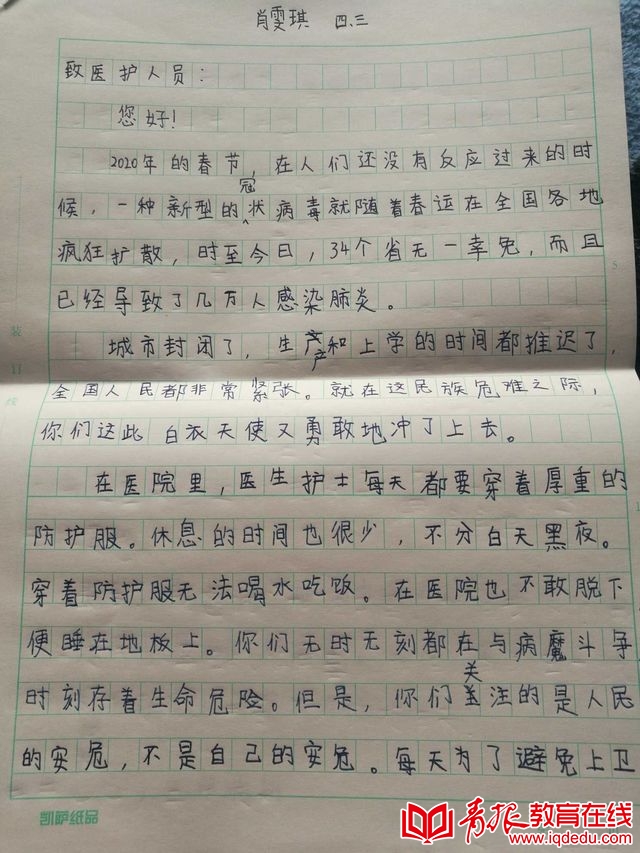 肖雯琪 四.三
致医护人员：
您好！
2020年的春节，在人们还没有反应过来的时
候，一种新型的冠状病毒就随着春运在全国各地
疯狂扩散，时至今日，34个省无一幸免，而且
已经导致了几万人感染肺炎。
城市封闭了，生产和上学的时间都推迟了，
全国人民都非常紧张。就在这民族危难之际，
你们这此白衣天使又勇敢地冲了上去。
在医院里，医生护士每天都要穿着厚重的
防护服。休息的时间也很少，不分白天黑夜。
穿着防护服无法喝水吃饭。在医院也不敢脱下
便睡在地板上。你们无时无刻都在与病魔斗争
时刻存着生命危险。但是，你们关注的是人民
的安危，不是自己的安危。每天为了避免上卫
装
订
线
凯萨纸品
青报教育在线
www.iqdedu.com